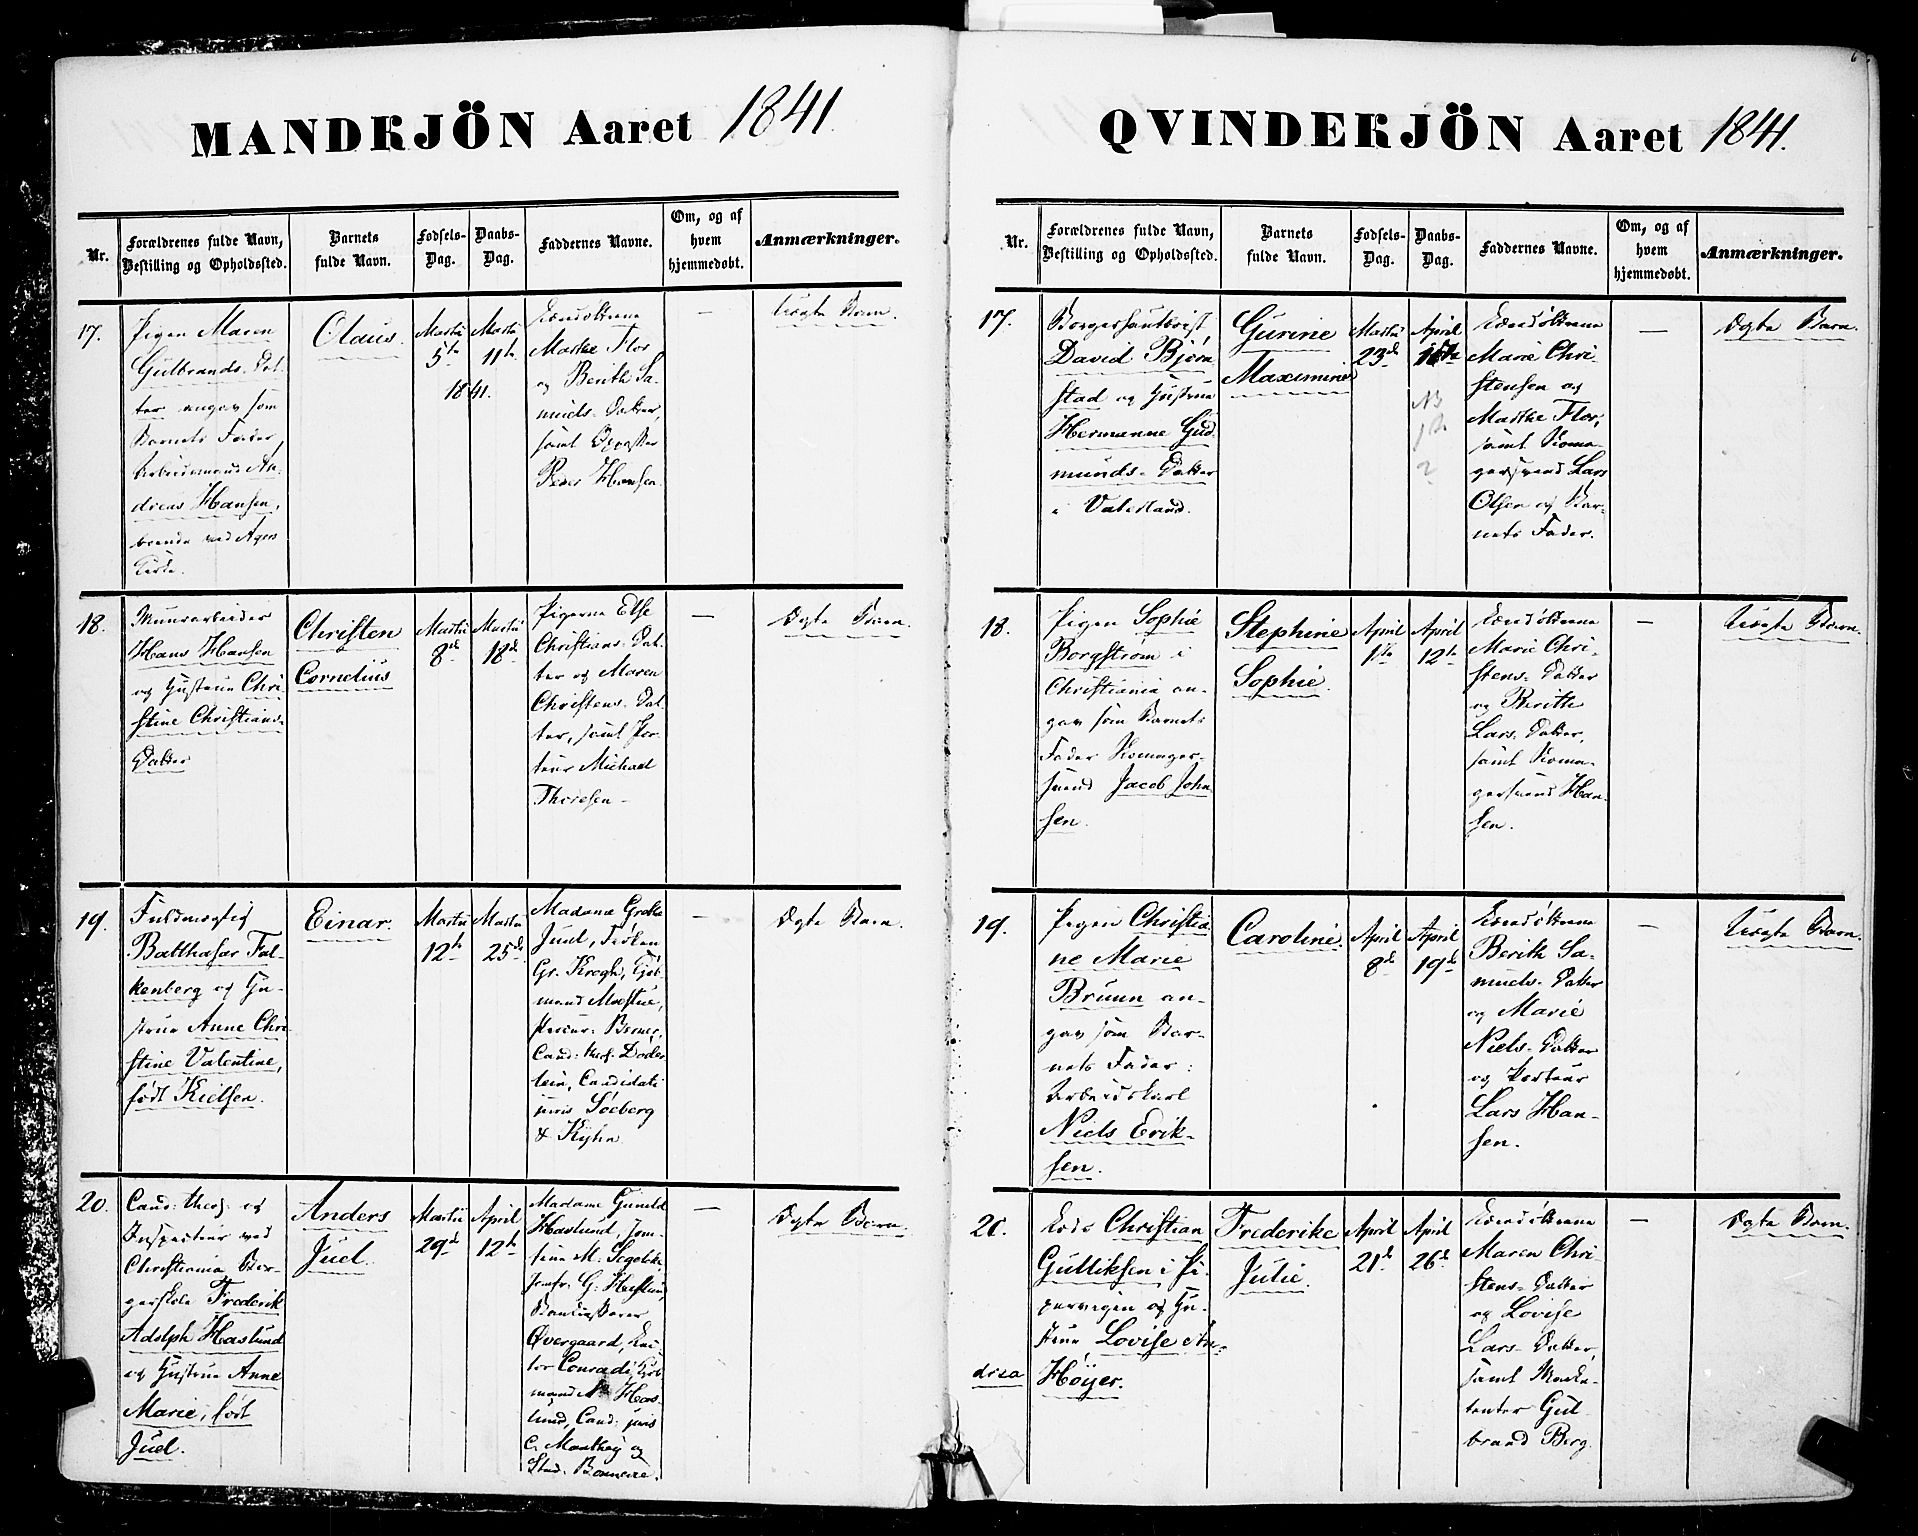 MANDKJÖN Aaret 1841.
Nr.
Forældrenes fulde Navn,
Bestilling og Opholdssted.
Barnets
fulde Navn.
Fødsels-
Dag.
Daabs-
Dag.
Faddernes Navne.
Om, og af
hvem
hjemmedøbt.
Anmærkninger.
17.
Pigen Maren
Gulbrands-Dat-
ter angav som
Barnets Fader
Arbeidsmand An-
dreas Hansen,
boende ved Agers
Kirke.
Olaus.
Martii
5te
Martii
11te
1841.
Jordmødrene
Marthe Flor
og Berith Sa-
muels-Datter,
samt
Peder Hansen.
—
Uægte Barn.
18.
Muurarbeider
Hans Hansen
og Hustrue Chri-
stine Christians-
Datter
Christen
Cornelius
Martii
8de
Martii
18de
Pigerne Else
Christians-Dat-
ter og Maren
Christens-Dat-
ter, samt Por-
teur Michael
Thoresen
—
Ægte Barn.
19.
Fuldmægtig
Balthasar Fal-
kenberg og Hu-
strue Anne Chri-
stine Valentine,
født Kielsen.
Einar.
Martii
12te
Martii
25de
Madame Grethe
Juel, Frøken
Gr. Krogh, Kjøb-
mand Mæstue,
Procur: Berner,
Cand: theol: Døder-
lein, Candidati
juris Søeberg
& Kyhn
—
Ægte Barn.
20.
Cand: theol: og
Inspecteur ved
Christiania Bor-
gerskole Frederik
Adolph Haslund
og Hustrue Anne
Marie, født
Juel.
Anders
Juel.
Martii
29de
April
12te
Madame Gunild
Haslund, Jom-
frue M. Segelcke,
Jomfr. G. Haslund,
Overgaard,
Conradi, Kjøb-
mand N. Has-
lund, Cand: juris
C. Manthey og
Stud. Bonnevie.
—
Ægte Barn.
QVINDEKJÖN Aaret 1841.
Nr.
Forældrenes fulde Navn,
Bestilling og Opholdssted.
Barnets
fulde Navn.
Fødsels-
Dag.
Daabs-
Dag.
Faddernes Navne.
Om, og af
hvem
hjemmedøbt.
Anmærkninger.
17.
Borgerhautboist
David Bjørn-
stad og Hustrue
Hermanne Gud-
munds-Datter
i Vaterland.
Gurine
Maximine
Martii
23de
April
NB
Jordmødrene
Marie Chri-
stensen og
Marthe Flor,
samt Koma-
gersvend Lars
Olsen og Bar-
nets Fader.
—
Ægte Barn.
18.
Pigen Sophie
Borgstrøm i
Christiania an-
gav som Barnets
Fader Komager-
svend Jacob John-
sen.
Stephine
Sophie.
April
1ste
April
12te
Jordmødrene
Marie Chri-
stens-Datter
og Berithe
Lars-Datter,
samt Koma-
gersvend Han-
sen.
—
Uægte Barn.
19.
Pigen Christia-
ne Marie
Bruun an-
gav som Bar-
nets Fader:
Arbeidskarl
Niels Erik-
sen.
Caroline.
April
8de
April
19de
Jordmødrene
Berith Sa-
muels-Datter
og Marie
Niels-Datter
og Porteur
Lars Han-
sen.
—
Uægte Barn.
20.
Lods Christian
Gulliksen i Pi-
pervigen og Hu-
strue Lovise An-
drea Høyer.
Frederike
Julie.
April
21de
April
26de
Jordmødrene
Maren Chri-
stens-Datter
og Lovise
Lars-Datter,
samt Marke-
tenter Gul-
brand Berg.
—
Ægte Barn.